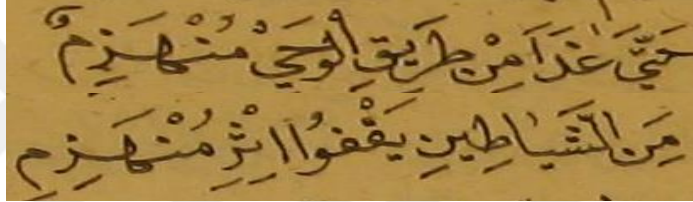 حَتَّىٰ غَدَا مِنْ طَرِيقِ الْوَحْيْ مُنْهَزِمٌ
مِنَ الشَّيَاطِينِ يَقْفُوا اِثْرِ مُنْهَزِمِ